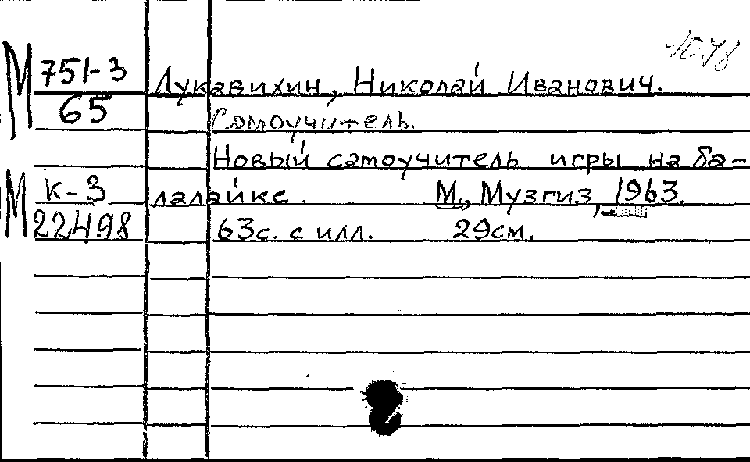 М 751-3
65
Лукавихин, Николай Иванович.
Самоучитель.
Новый самоучитель игры на ба-
М К-3 лалайке. М., Музгиз, 1963.
22498 63с. с илл. 29см.